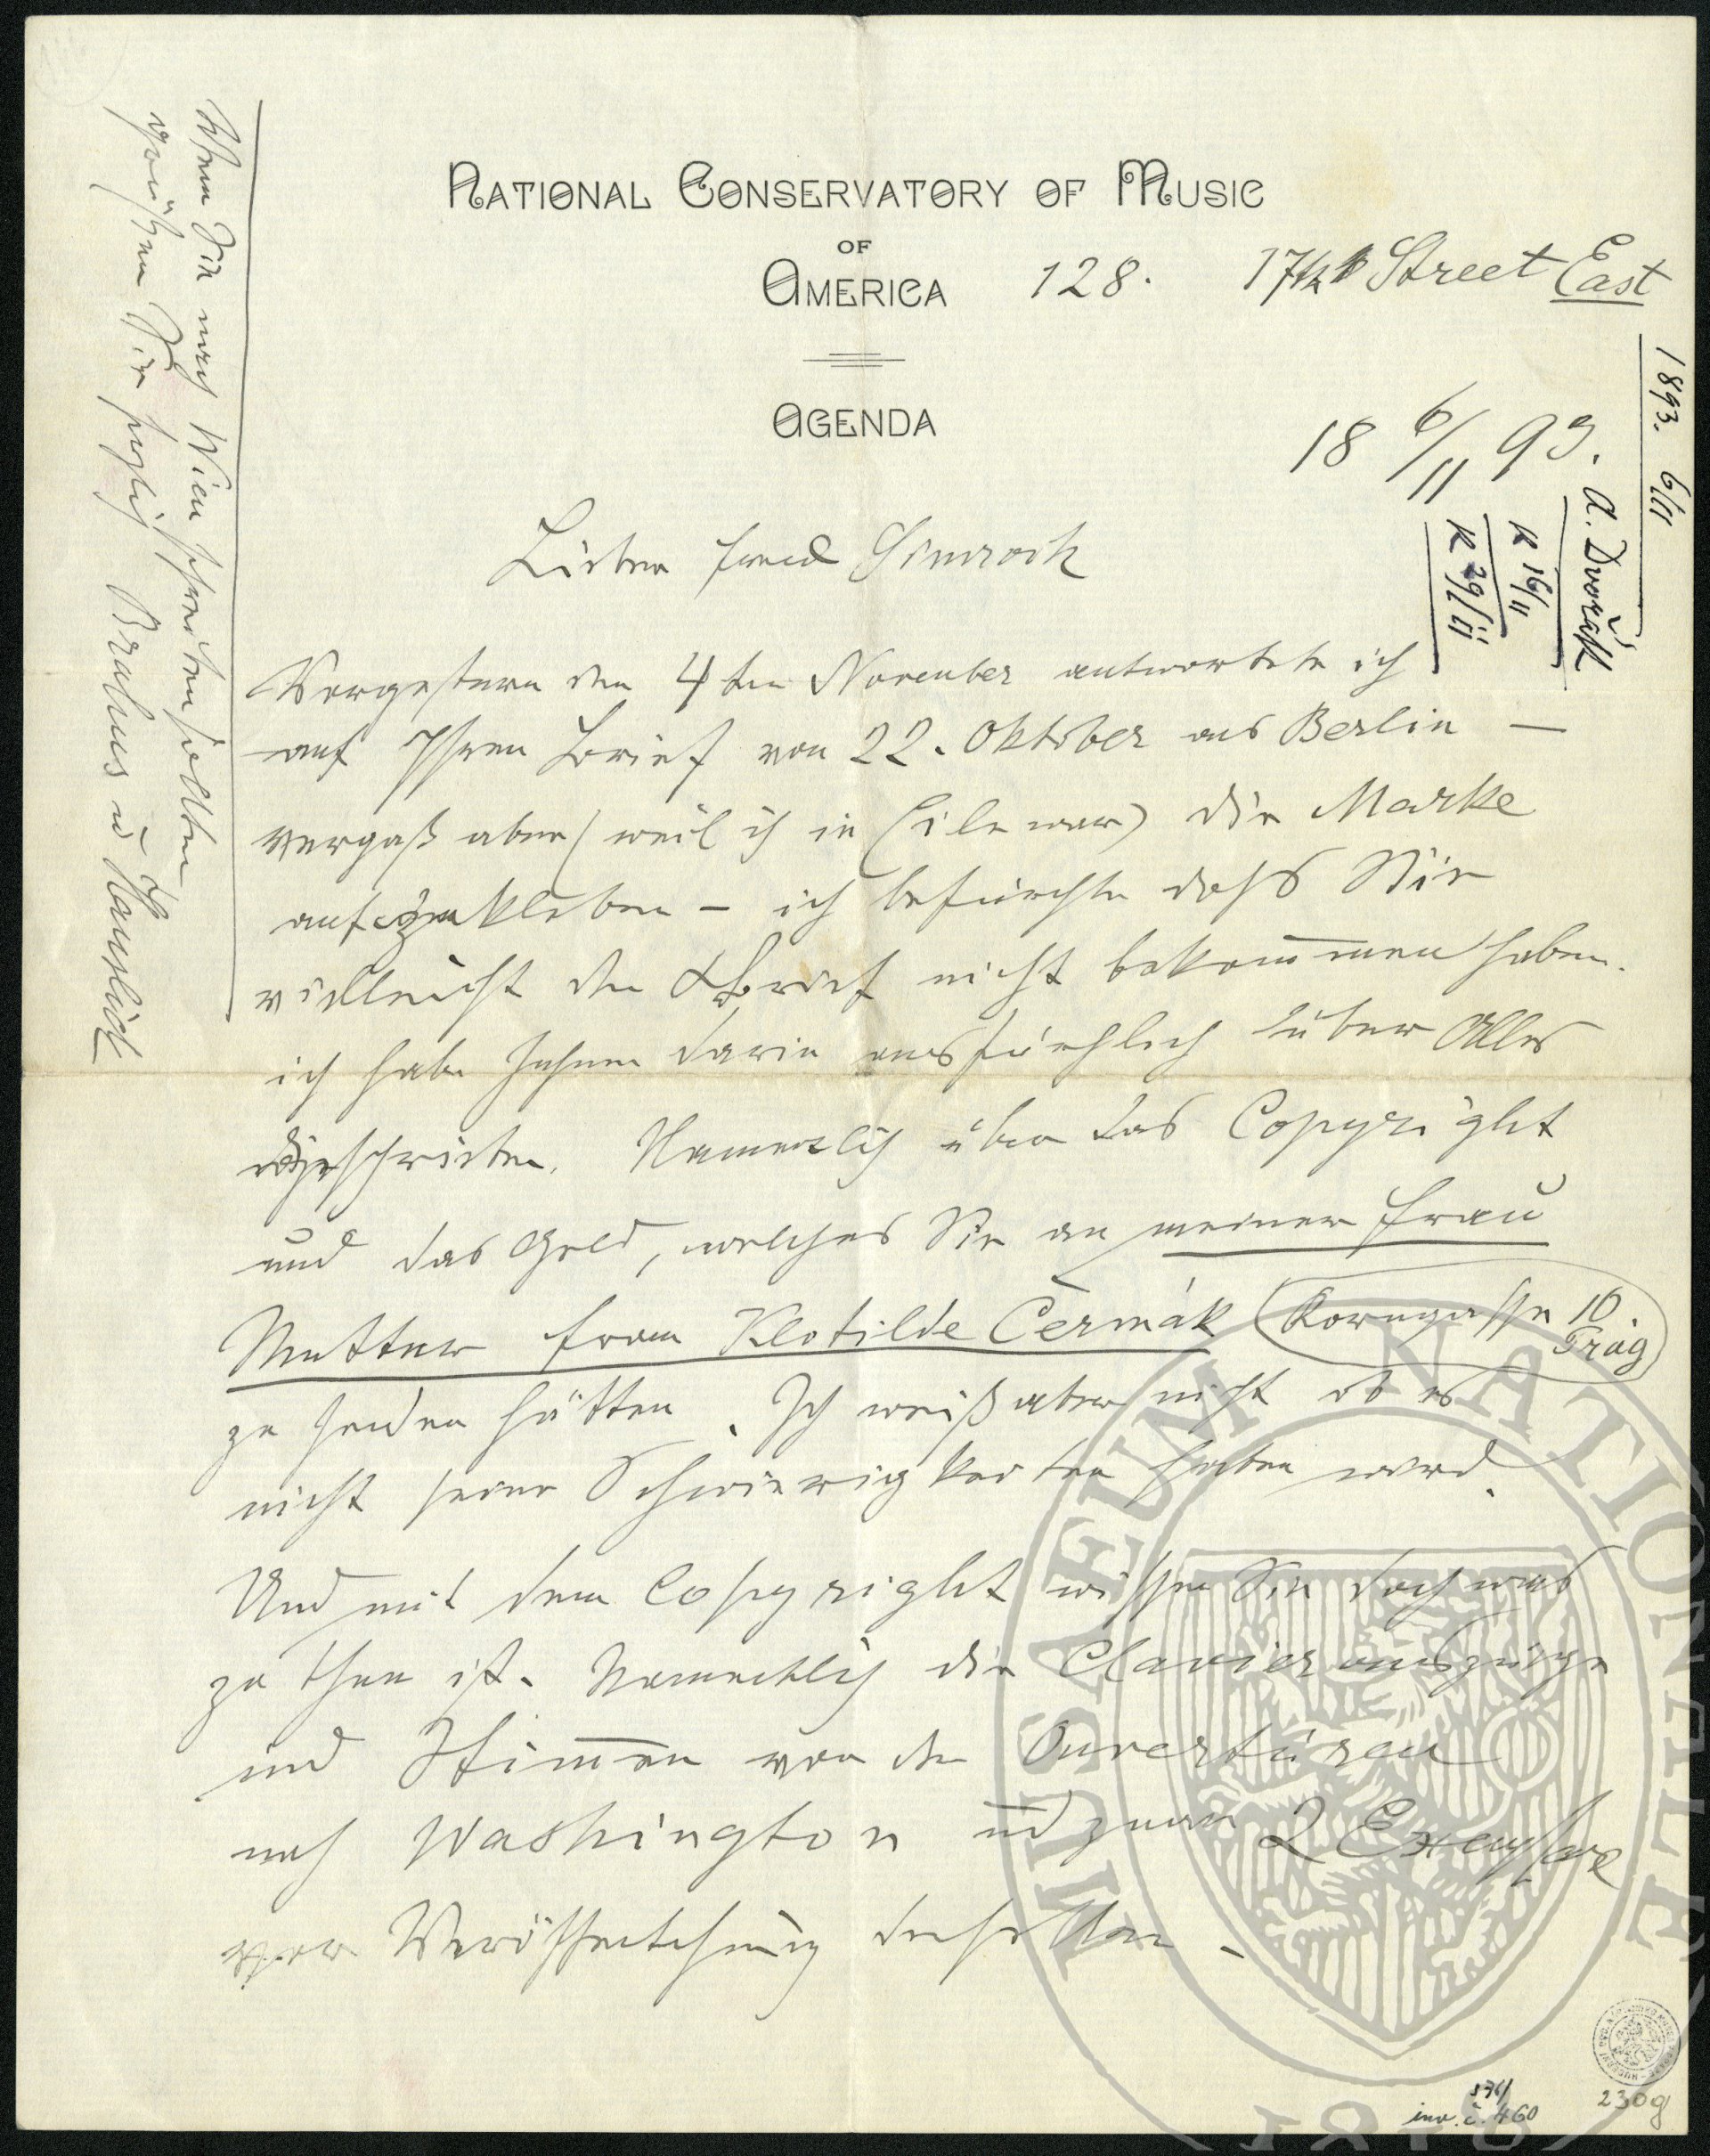 NATIONAL CONSERVATORY OF MUSIC
OF
AMERICA 128. 17th Street East
AGENDA
18 6/11 93.
1893. 6/11
A. Dvořák
R 16/11
R 29/11
Lieber Freund Simrock
Vorgestern den 4ten November antwortete ich
auf Ihren Brief von 22. Oktober aus Berlin —
vergaß aber (weil ich in Eile war) die Marke
aufzukleben – ich befürchte dass Sie
vielleicht den Brief nicht bekommen haben.
ich habe Ihnen darin ausführlich über Alles
geschrieben. Namentlich über das Copyright
und das Geld, welches Sie an meiner Frau
Mutter Frau Klotilde Čermák (Korngasse 10.
Prag)
zu senden hätten. Ich weiß aber nicht ob es
nicht seine Schwierigkeiten haben wird.
Und mit dem Copyright wissen Sie doch was
zu thun ist. Namentlich die Clavierauszüge
und Stimmen von den Ouverturen
nach Washington und zwar 2 Exemplare
vor Veröffentlichung derselben.
Wenn Sie nach Wien schreiben sollten
grüßen Sie herzlich Brahms u Hanslick
MUSAEUM NATIONALE
1818
inv. č. 460
230g